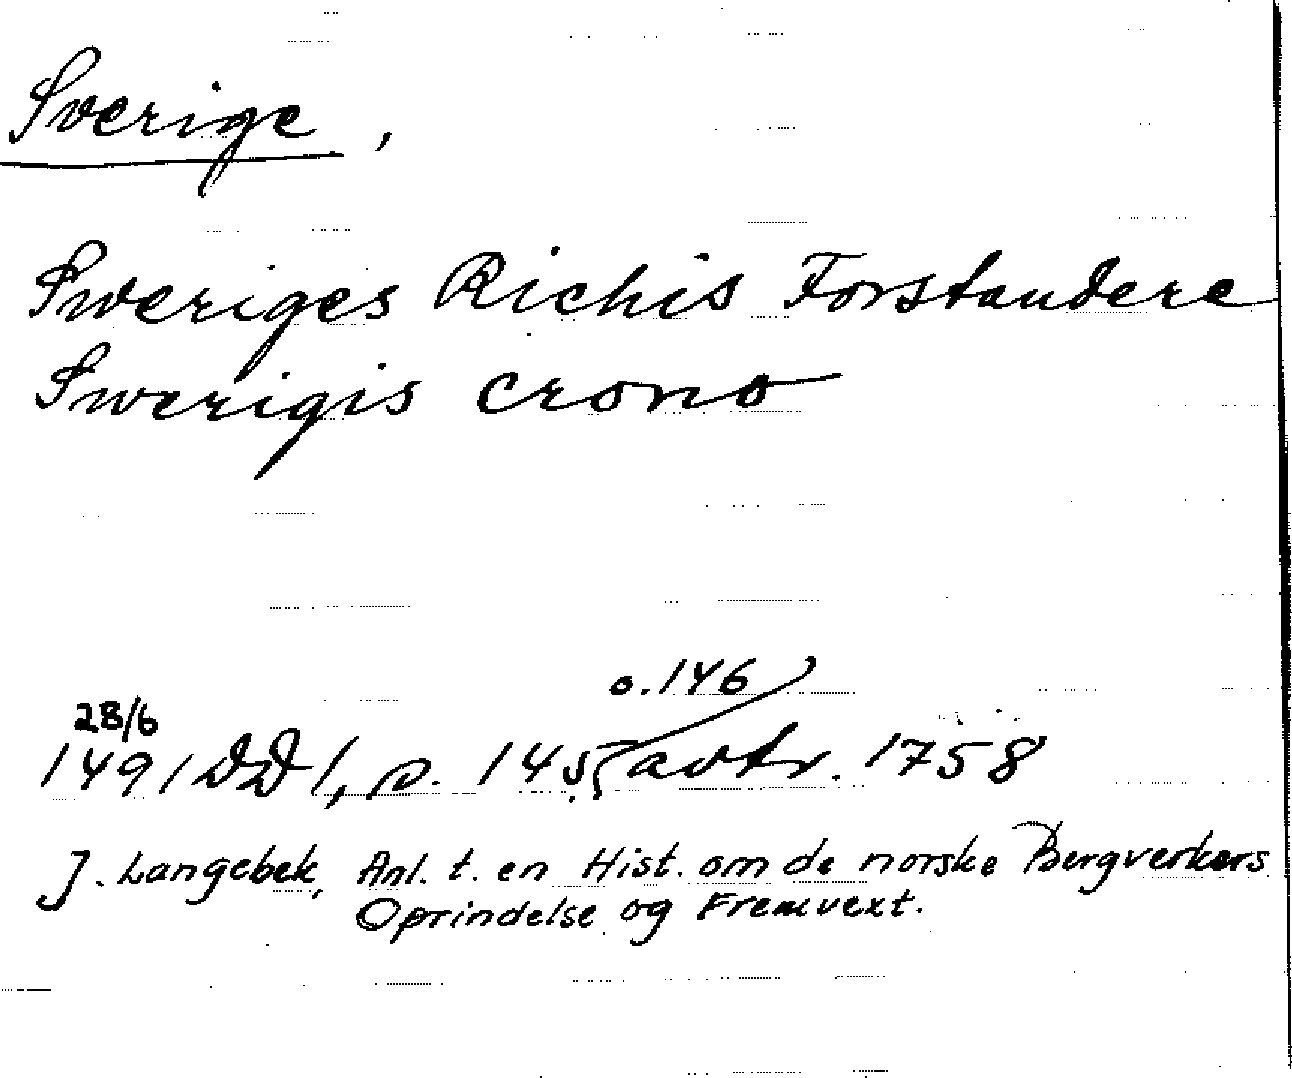 Sverige,
Sweriges Richis Forstandere
Swerigis crono
o. 146
28/6
1491 DD 1, p. 145 avtr. 1758
J. Langebek, Anl. t. en Hist. om de norske Bergverkers
Oprindelse og Fremvext.